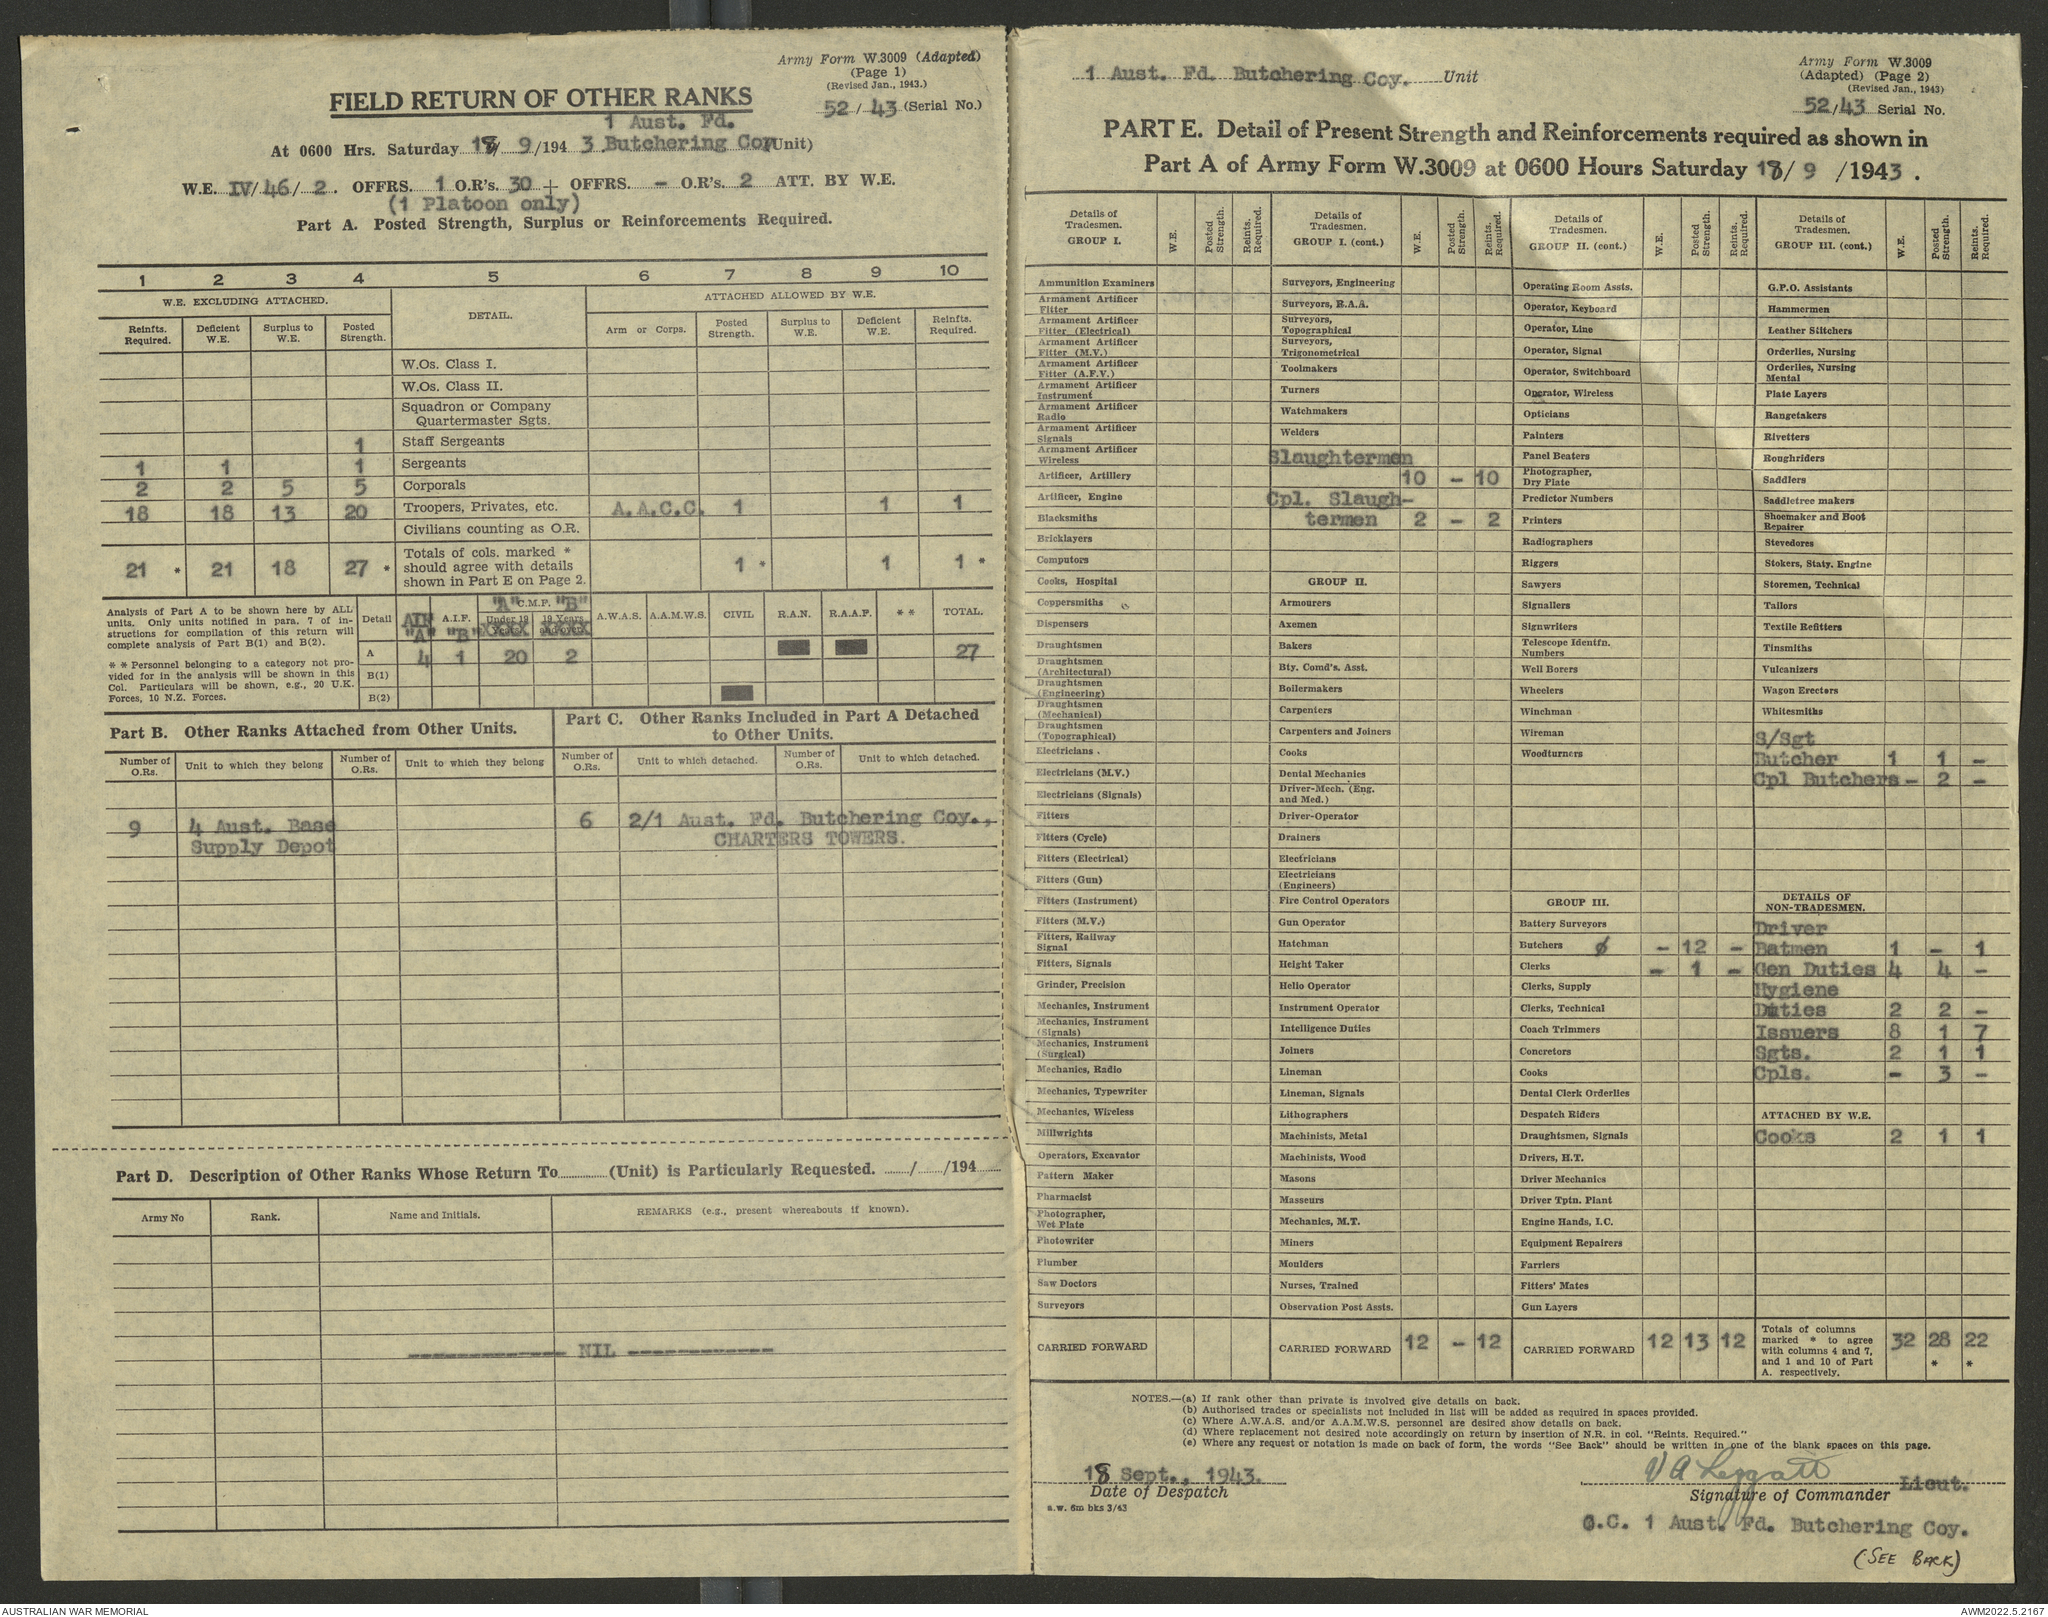 Army Form W.3009 (Adapted)
(Page 1)
(Revised Jan., 1943.)
FIELD RETURN OF OTHER RANKS
52 / 43 (Serial No.)
1 Aust. Fd.
At 0600 Hrs. Saturday 18/ 9 /194 3 Butchering Coy (Unit)
W.E. IV/ 46 / 2 . OFFRS. 1 O.R's. 30 + OFFRS. - O.R's. 2 ATT. BY W.E.
(1 Platoon only)
Part A. Posted Strength, Surplus or Reinforcements Required.
1 2 3 4 5 6 7 8 9 10
W.E. EXCLUDING ATTACHED. DETAIL. ATTACHED ALLOWED BY W.E.
Reinfts. Required. Deficient W.E. Surplus to W.E. Posted Strength. Arm or Corps. Posted Strength. Surplus to W.E. Deficient W.E. Reinfts. Required.
W.Os. Class I.
W.Os. Class II.
Squadron or Company
Quartermaster Sgts.
1 Staff Sergeants
1 1 1 Sergeants
2 2 5 5 Corporals
18 18 13 20 Troopers, Privates, etc. A.A.C.C. 1 1 1
Civilians counting as O.R.
Totals of cols. marked *
21 * 21 18 27 * should agree with details 1 * 1 1 *
shown in Part E on Page 2.
Analysis of Part A to be shown here by ALL
units. Only units notified in para. 7 of in-
structions for compilation of this return will
complete analysis of Part B(1) and B(2).
* * Personnel belonging to a category not pro-
vided for in the analysis will be shown in this
Col. Particulars will be shown, e.g., 20 U.K.
Forces, 10 N.Z. Forces.
"A" C.M.P. "B"
Detail AIF "A" A.I.F. "B" Under 19 Years 19 Years and over A.W.A.S. A.A.M.W.S. CIVIL R.A.N. R.A.A.F. * * TOTAL.
A 4 1 20 2 27
B(1)
B(2)
Part B. Other Ranks Attached from Other Units.
Part C. Other Ranks Included in Part A Detached
to Other Units.
Number of O.Rs. Unit to which they belong Number of O.Rs. Unit to which they belong Number of O.Rs. Unit to which detached. Number of O.Rs. Unit to which detached.
9 4 Aust. Base 6 2/1 Aust. Fd. Butchering Coy.,
Supply Depot CHARTERS TOWERS.
Part D. Description of Other Ranks Whose Return To............(Unit) is Particularly Requested. ....../....../194......
Army No Rank. Name and Initials. REMARKS (e.g., present whereabouts if known).
------------- NIL ------------
1 Aust. Fd. Butchering Coy. Unit
Army Form W.3009
(Adapted) (Page 2)
(Revised Jan., 1943)
52/43 Serial No.
PART E. Detail of Present Strength and Reinforcements required as shown in
Part A of Army Form W.3009 at 0600 Hours Saturday 18/ 9 /1943 .
Details of Tradesmen. GROUP I. W.E. Posted Strength. Reints. Required.
Ammunition Examiners
Armament Artificer
Fitter
Armament Artificer
Fitter (Electrical)
Armament Artificer
Fitter (M.V.)
Armament Artificer
Fitter (A.F.V.)
Armament Artificer
Instrument
Armament Artificer
Radio
Armament Artificer
Signals
Armament Artificer
Wireless
Artificer, Artillery
Artificer, Engine
Blacksmiths
Bricklayers
Computors
Cooks, Hospital
Coppersmiths
Dispensers
Draughtsmen
Draughtsmen
(Architectural)
Draughtsmen
(Engineering)
Draughtsmen
(Mechanical)
Draughtsmen
(Topographical)
Electricians .
Electricians (M.V.)
Electricians (Signals)
Fitters
Fitters (Cycle)
Fitters (Electrical)
Fitters (Gun)
Fitters (Instrument)
Fitters (M.V.)
Fitters, Railway
Signal
Fitters, Signals
Grinder, Precision
Mechanics, Instrument
Mechanics, Instrument
(Signals)
Mechanics, Instrument
(Surgical)
Mechanics, Radio
Mechanics, Typewriter
Mechanics, Wireless
Millwrights
Operators, Excavator
Pattern Maker
Pharmacist
Photographer,
Wet Plate
Photowriter
Plumber
Saw Doctors
Surveyors
CARRIED FORWARD
Details of Tradesmen. GROUP I. (cont.) W.E. Posted Strength. Reints. Required.
Surveyors, Engineering
Surveyors, R.A.A.
Surveyors,
Topographical
Surveyors,
Trigonometrical
Toolmakers
Turners
Watchmakers
Welders
Slaughtermen
10 - 10
Cpl. Slaugh-
termen 2 - 2
GROUP II.
Armourers
Axemen
Bakers
Bty. Comd's. Asst.
Boilermakers
Carpenters
Carpenters and Joiners
Cooks
Dental Mechanics
Driver-Mech. (Eng.
and Med.)
Driver-Operator
Drainers
Electricians
Electricians
(Engineers)
Fire Control Operators
Gun Operator
Hatchman
Height Taker
Helio Operator
Instrument Operator
Intelligence Duties
Joiners
Lineman
Lineman, Signals
Lithographers
Machinists, Metal
Machinists, Wood
Masons
Masseurs
Mechanics, M.T.
Miners
Moulders
Nurses, Trained
Observation Post Assts.
CARRIED FORWARD 12 - 12
Details of Tradesmen. GROUP II. (cont.) W.E. Posted Strength. Reints. Required.
Operating Room Assts.
Operator, Keyboard
Operator, Line
Operator, Signal
Operator, Switchboard
Operator, Wireless
Opticians
Painters
Panel Beaters
Photographer,
Dry Plate
Predictor Numbers
Printers
Radiographers
Riggers
Sawyers
Signallers
Signwriters
Telescope Identfn.
Numbers
Well Borers
Wheelers
Winchman
Wireman
Woodturners
GROUP III.
Battery Surveyors
Butchers ø - 12 -
Clerks - 1 -
Clerks, Supply
Clerks, Technical
Coach Trimmers
Concretors
Cooks
Dental Clerk Orderlies
Despatch Riders
Draughtsmen, Signals
Drivers, H.T.
Driver Mechanics
Driver Tptn. Plant
Engine Hands, I.C.
Equipment Repairers
Farriers
Fitters' Mates
Gun Layers
CARRIED FORWARD 12 13 12
Details of Tradesmen. GROUP III. (cont.) W.E. Posted Strength. Reints. Required.
G.P.O. Assistants
Hammermen
Leather Stitchers
Orderlies, Nursing
Orderlies, Nursing
Mental
Plate Layers
Rangetakers
Rivetters
Roughriders
Saddlers
Saddletree makers
Shoemaker and Boot
Repairer
Stevedores
Stokers, Staty. Engine
Storemen, Technical
Tailors
Textile Refitters
Tinsmiths
Vulcanizers
Wagon Erectors
Whitesmiths
S/Sgt
Butcher 1 1 -
Cpl Butchers - 2 -
DETAILS OF
NON-TRADESMEN.
Driver
Batmen 1 - 1
Gen Duties 4 4 -
Hygiene
Duties 2 2 -
Issuers 8 1 7
Sgts. 2 1 1
Cpls. - 3 -
ATTACHED BY W.E.
Cooks 2 1 1
Totals of columns
marked * to agree
with columns 4 and 7,
and 1 and 10 of Part
A. respectively.
32 28 22
* *
NOTES.—(a) If rank other than private is involved give details on back.
(b) Authorised trades or specialists not included in list will be added as required in spaces provided.
(c) Where A.W.A.S. and/or A.A.M.W.S. personnel are desired show details on back.
(d) Where replacement not desired note accordingly on return by insertion of N.R. in col. "Reints. Required."
(e) Where any request or notation is made on back of form, the words "See Back" should be written in one of the blank spaces on this page.
18 Sept., 1943.
Date of Despatch
a.w. 6m bks 3/43
V A Leggatt
Lieut.
Signature of Commander
O.C. 1 Aust. Fd. Butchering Coy.
(SEE BACK)
AUSTRALIAN WAR MEMORIAL
AWM2022.5.2167